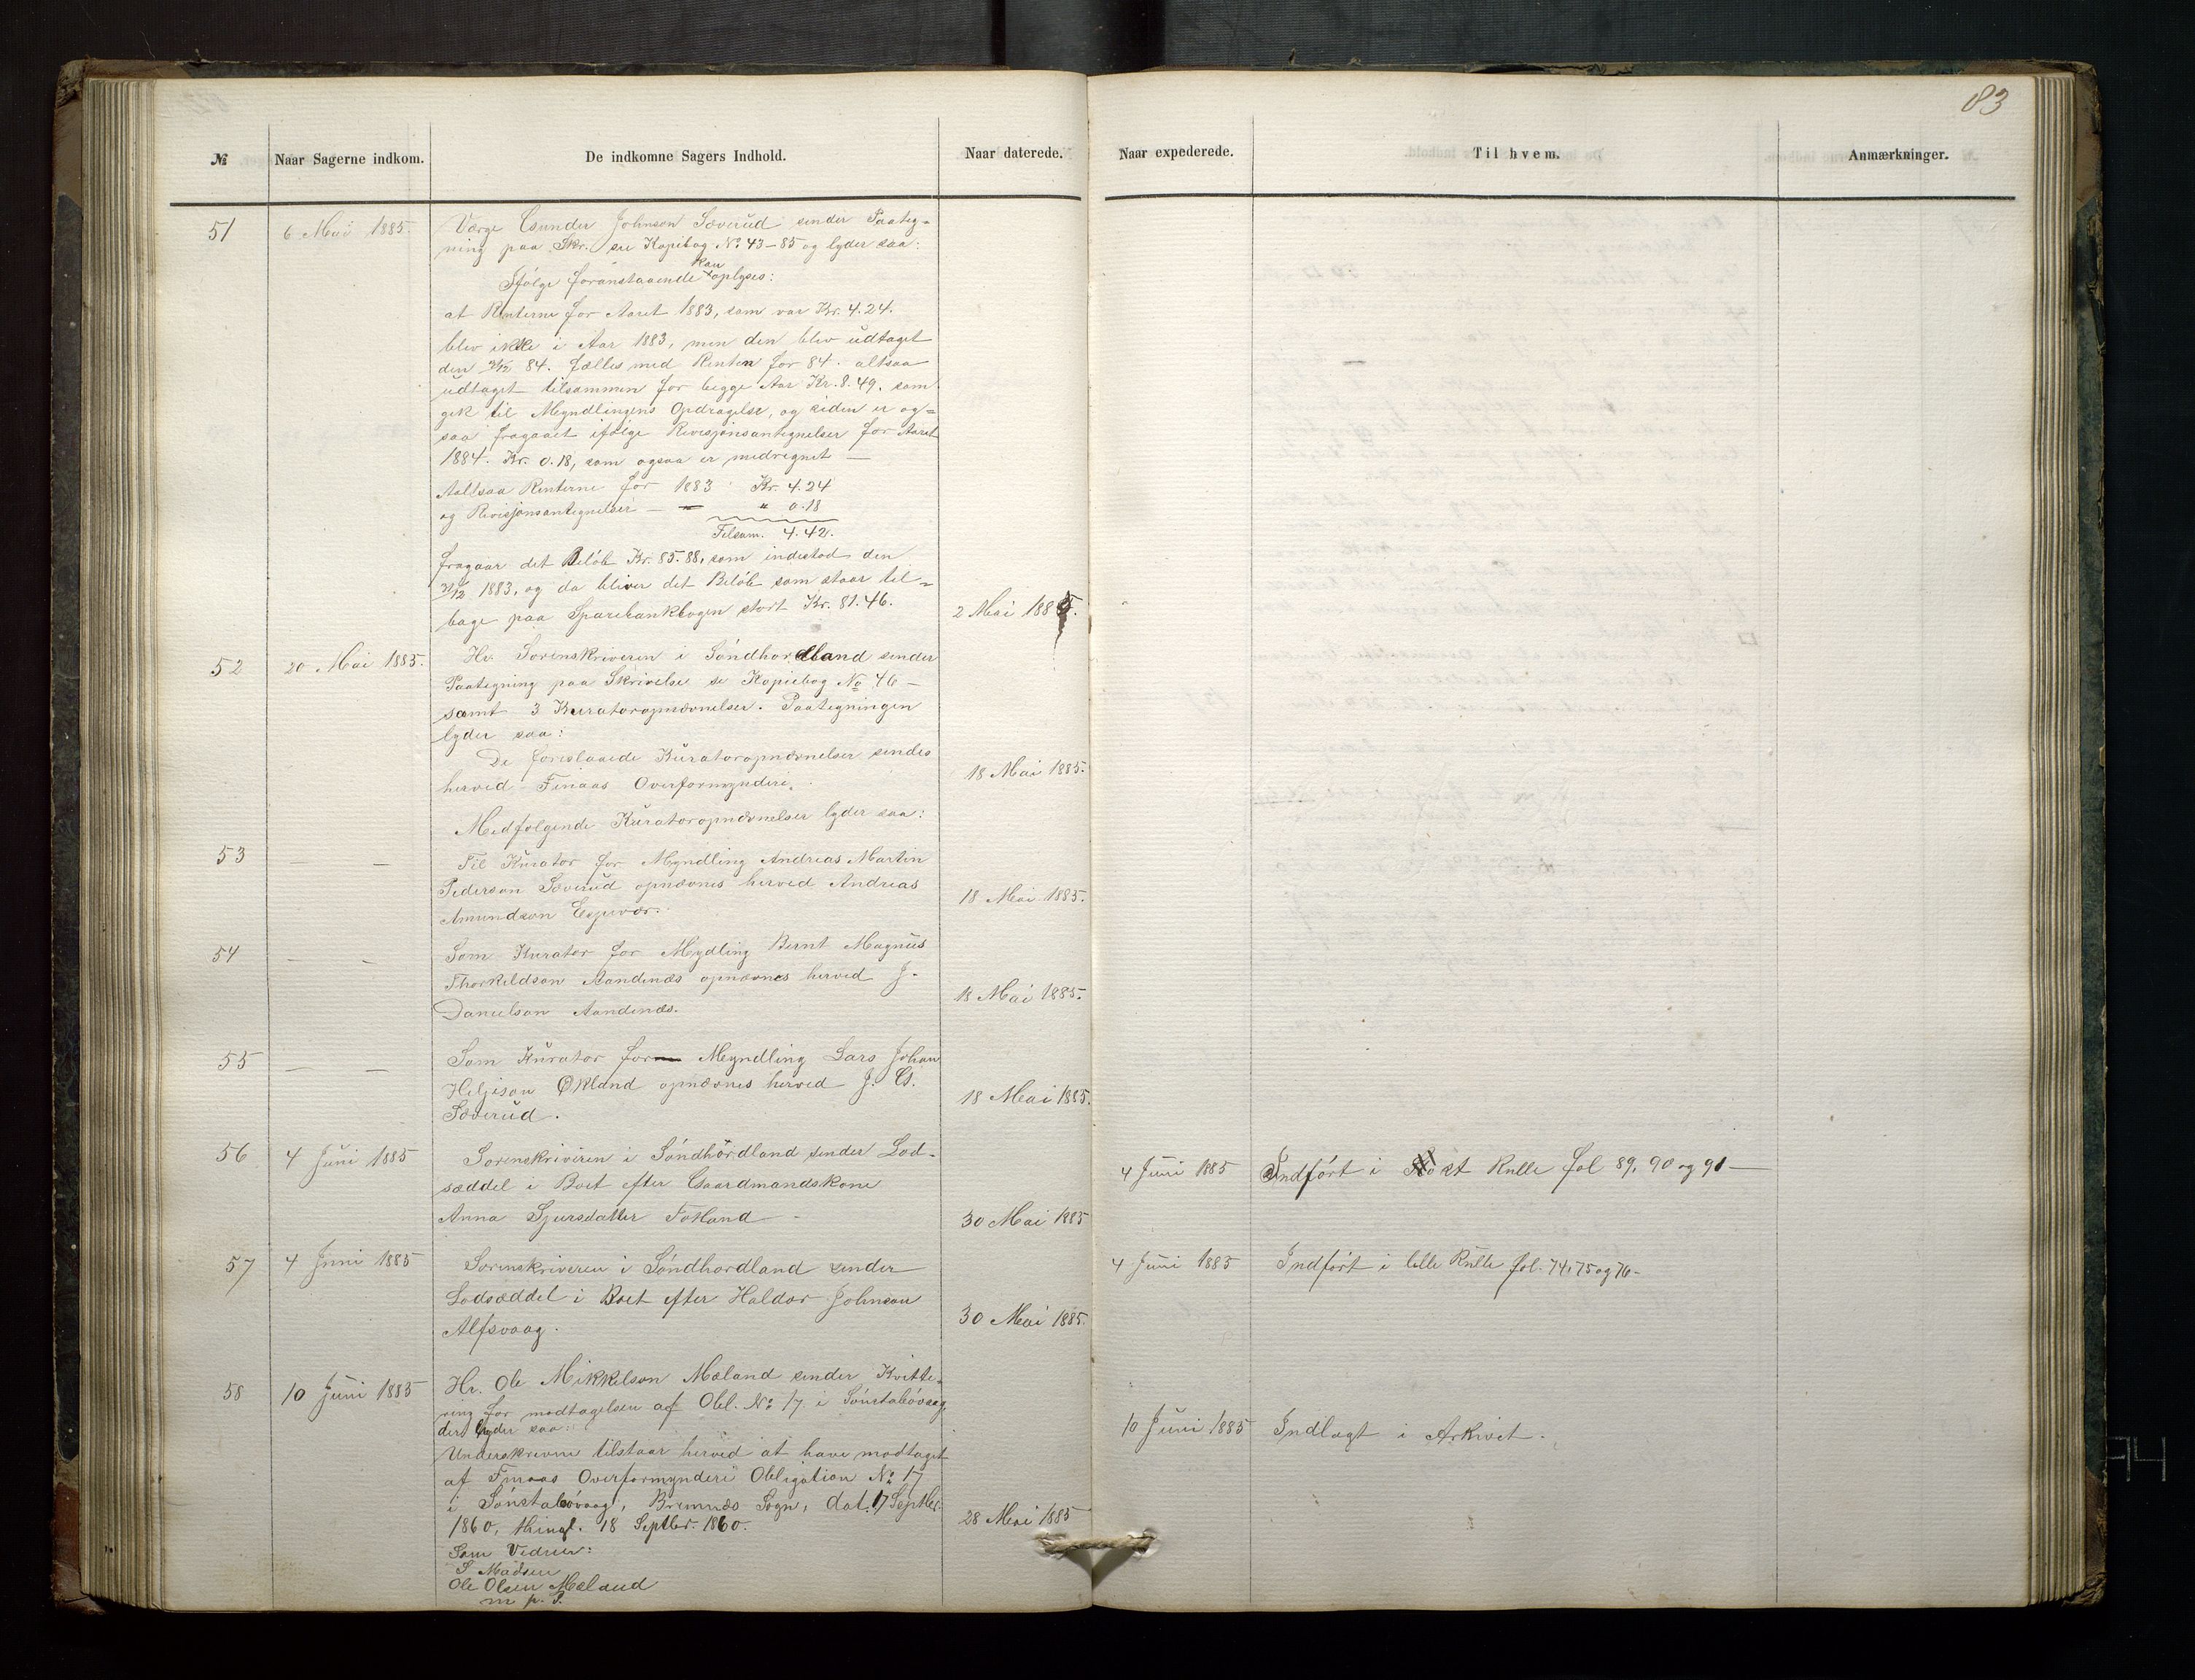 83
№ Naar Sagerne indkom. De indkomne Sagers Indhold. Naar daterede. Naar expederede. Til hvem. Anmærkninger.
51 6 Mai 1885. Værge Gunder Johnson Sæverud sender Paateg=
ning paa Skr. se Kopibog No 43-85 og lyder saa:
kan
Ifølge foranstaaende oplyses:
at Renterne for Aaret 1883, som var Kr. 4.24.
blev ikke i Aar 1883, men den blev udtaget
den 31/12 84. fælles med Renten for 84. altsaa
udtaget tilsammen for begge Aar Kr. 8.49. som
gik til Myndlingens Opdragelse, og siden er og=
saa fragaaet ifølge Revisjonsantegnelser for Aaret
1884. Kr. 0.18, som ogsaa er medregnet —
Aaltsaa Renterne for 1883 Kr. 4.24
og Revisjonsantegnelser — — " 0.18
Tilsam. 4.42.
fragaar det Beløb Kr. 85.88, som indestod den
31/12 1883, og da bliver det Beløb som staar til=
bage paa Sparebankbogen stort Kr. 81.46. 2 Mai 1885.
52 20 Mai 1885. Hr. Sorenskriveren i Søndhordland sender
Paategning paa Skrivelse se Kopiebog No 46 —
samt 3 Kuratoropnævnelser. Paategningen
lyder saa:
De foreslaaede Kuratoropnævnelser sendes
herved Finaas Overformynderi. 18 Mai 1885.
Medfølgende Kuratoropnævnelser lyder saa:
53 — — Til Kurator for Myndling Andreas Martin
Pederson Sæverud opnævnes herved Andreas
Amundson Espevær. 18 Mai 1885.
54 — — Som Kurator for Mydling Bernt Magnus
Thorkildson Aandenæs opnævnes herved J.
Danielson Aandenæs. 18 Mai 1885.
55 — — Som Kurator for Myndling Lars Johan
Helgison Økland opnævnes herved J. G.
Sæverud. 18 Mai 1885.
56 4 Juni 1885 Sorenskriveren i Søndhordland sender Lod-
sæddel i Boet efter Gaardmandskone
Anna Sjursdatter Totland — 30 Mai 1885
4 Juni 1885 Indført i Støst Rulle fol 89, 90 og 91 —
57 4 Juni 1885 Sorenskriveren i Søndhordland sender
Lodsæddel i Boet efter Haldor Johnson
Alfsvaag. 30 Mai 1885.
4 Juni 1885 Indført i lille Rulle fol. 74, 75 og 76 -
58 10 Juni 1885 Hr. Ole Mikkelson Mæland sender Kvitte=
ring for modtagelsen af Obl. No 17 i Sønstabøvaag,
der lyder saa:
Underskrevne tilstaar herved at have modtaget
af Finaas Overformynderi Obligation No 17
i Sønstabøvaag, Bremnæs Sogn, dat. 17 Septbr.
1860, thingl. 18 Septbr. 1860. 28 Mai 1885
Som Vidner:
S Madsen
Ole Olsen Mæland
m. p. P.
10 Juni 1885 Indlagt i Arkivet.